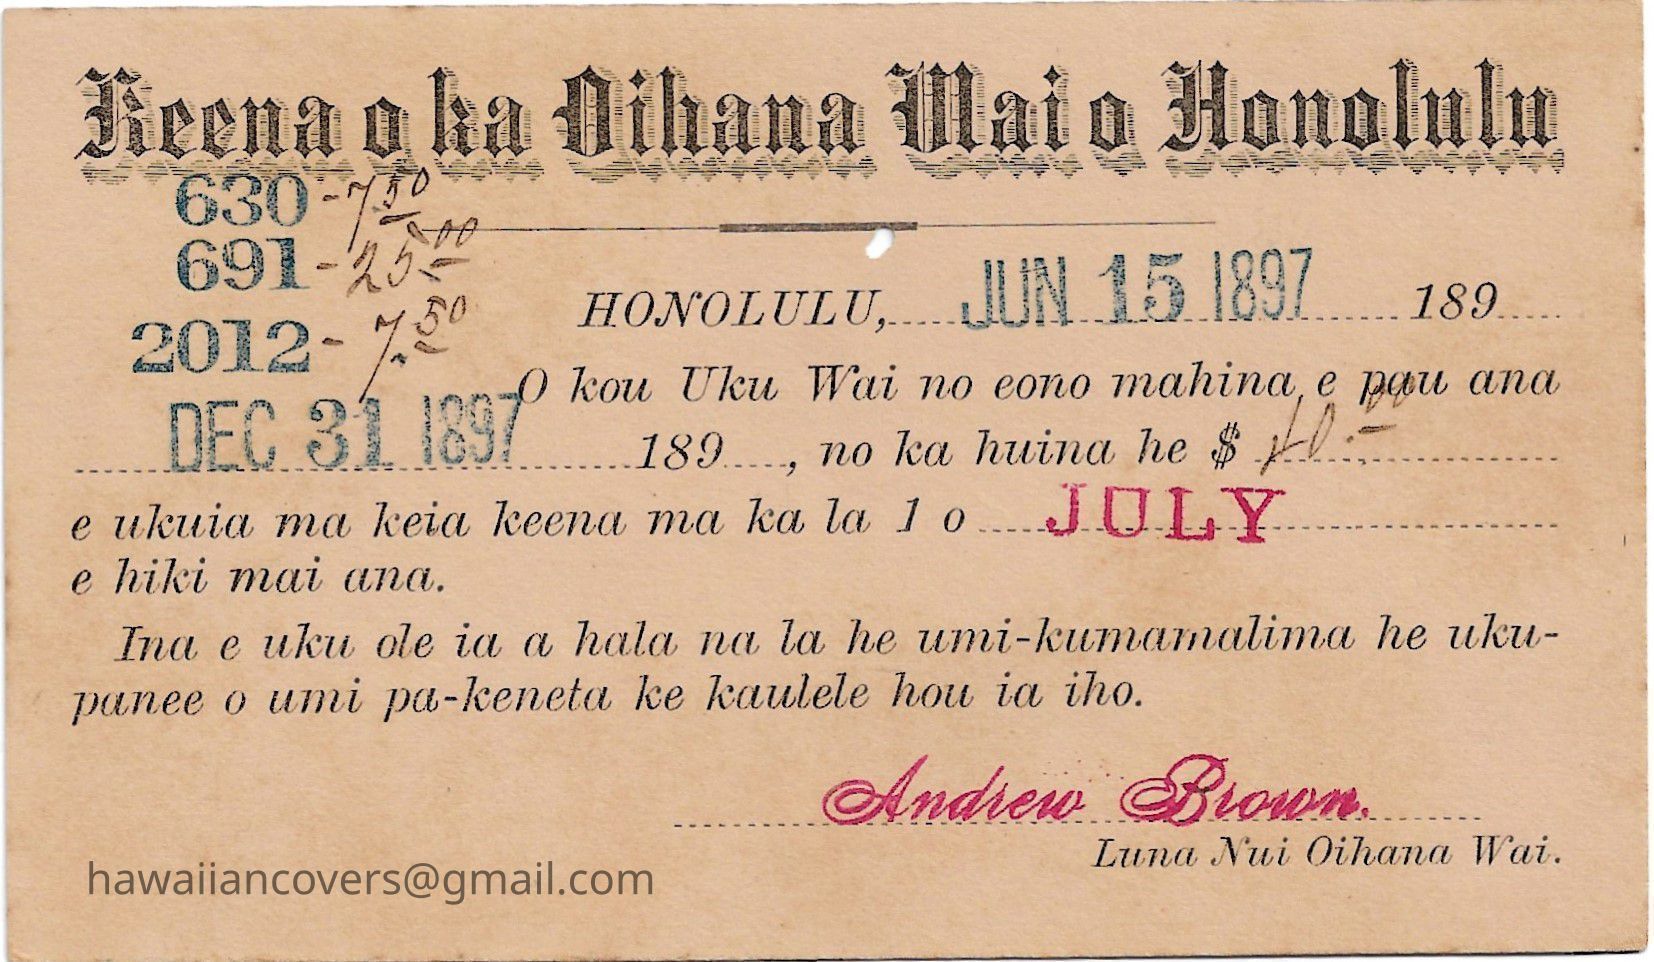 Keena o ka Oihana Wai o Honolulu
630 - 7.50
691 - 25.00
2012 - 7.50
HONOLULU, JUN 15 1897 189
O kou Uku Wai no eono mahina, e pau ana
DEC 31 1897 189 , no ka huina he $ 40.00
e ukuia ma keia keena ma ka la 1 o JULY
e hiki mai ana.
Ina e uku ole ia a hala na la he umi-kumamalima he uku-
panee o umi pa-keneta ke kaulele hou ia iho.
Andrew Brown.
Luna Nui Oihana Wai.
hawaiiancovers@gmail.com